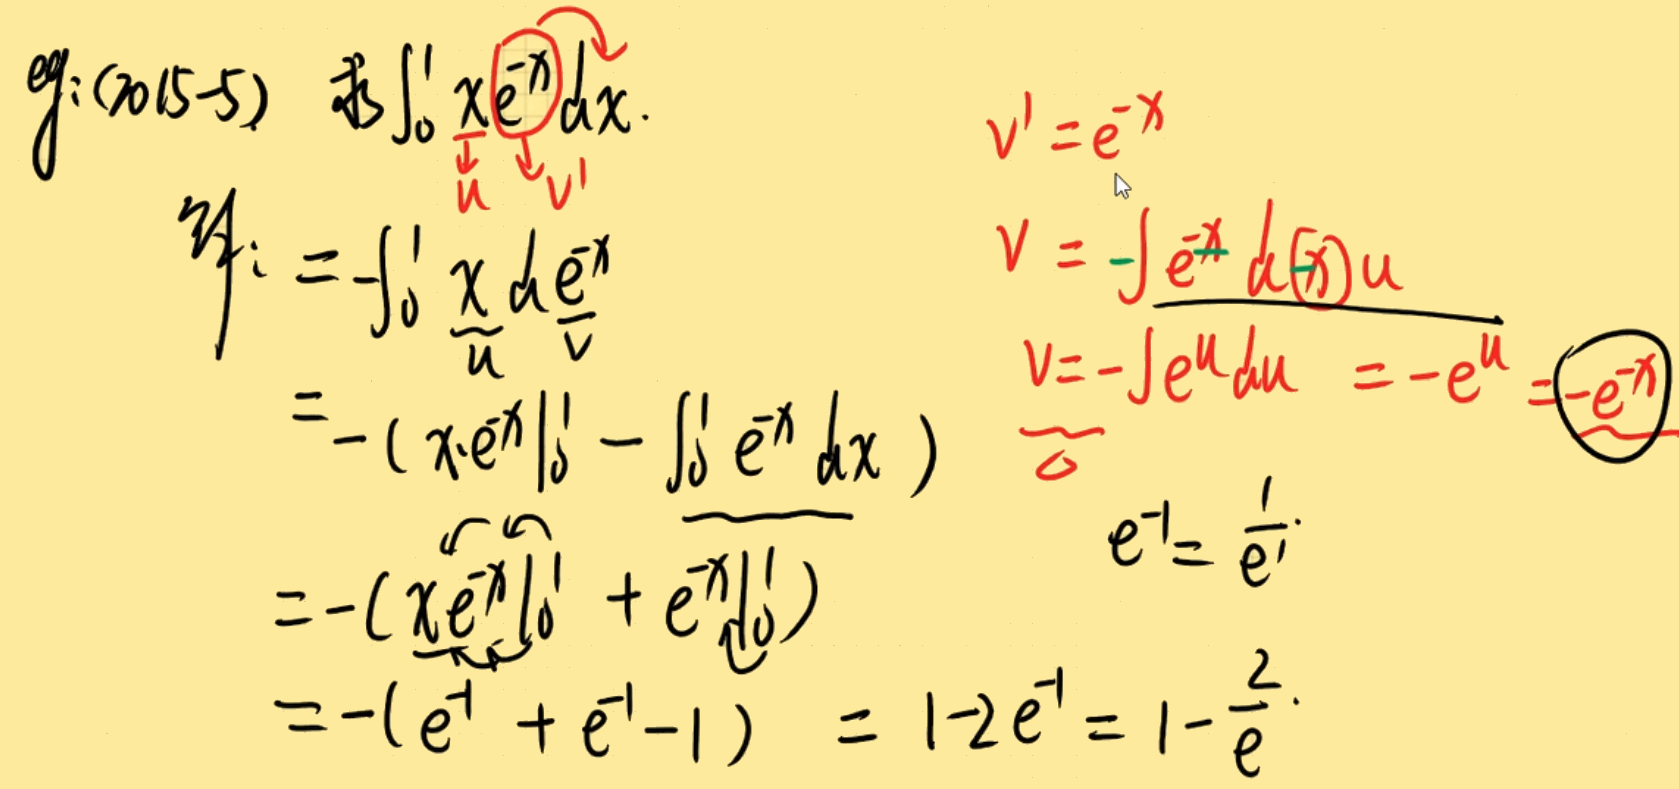 eg:(2015-5) 求∫₀¹ xe⁻ˣdx.
u v'
解: = -∫₀¹ x de⁻ˣ
u v
= -(x·e⁻ˣ|₀¹ - ∫₀¹ e⁻ˣ dx)
= -(xe⁻ˣ|₀¹ + e⁻ˣ|₀¹)
= -(e⁻¹ + e⁻¹ - 1) = 1-2e⁻¹ = 1 - 2/e.
v' = e⁻ˣ
v = -∫e⁻ˣ d(-x) u
v = -∫eᵘdu = -eᵘ = -e⁻ˣ
e⁻¹ = 1/e¹.